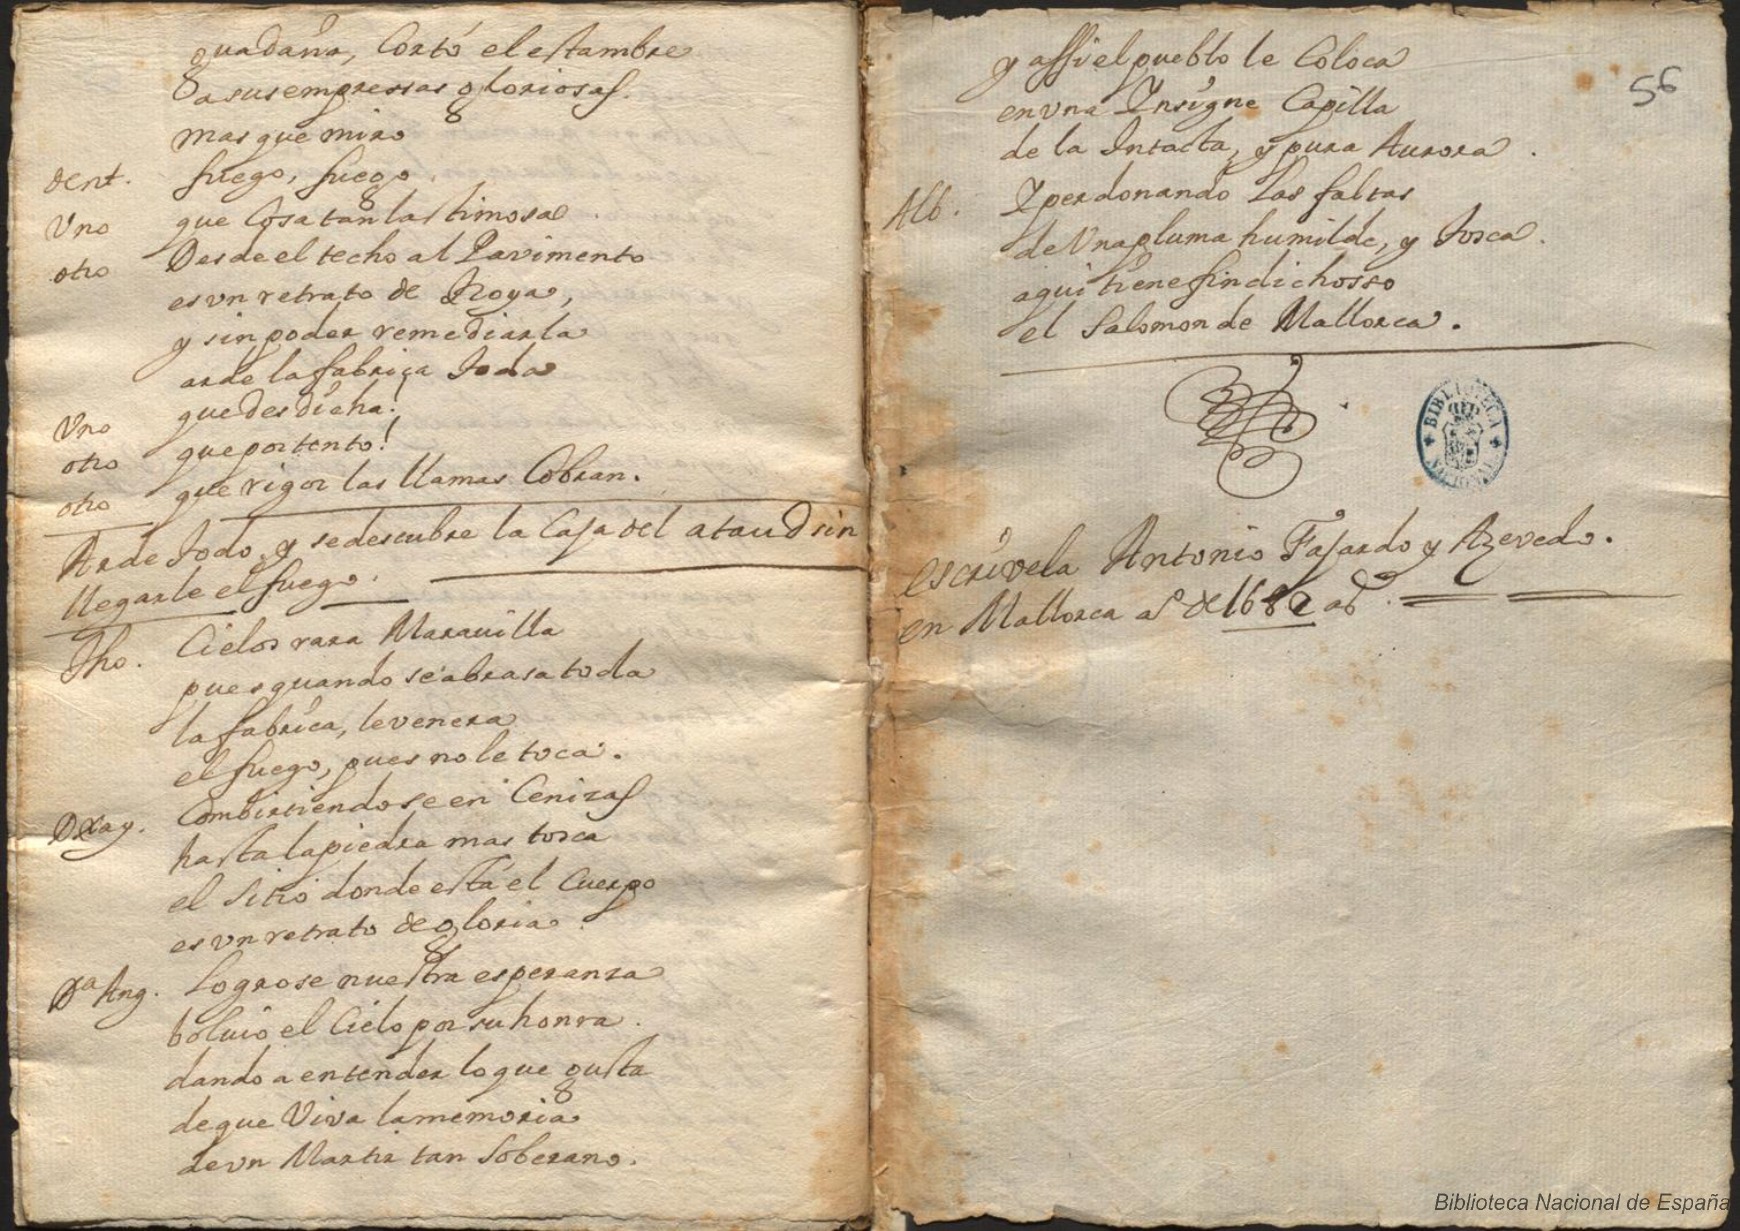 guadaña, Cortó el estambre
a sus empressas gloriosas.
mas que miro
dent. fuego, fuego.
Vno que Cosa tan lastimosa.
otro Desde el techo al Pavimento
es vn retrato de Troya,
y sin poder remediarla
arde la fabrica toda
Vno que desdicha!
otro que portento!
otro que rigor las llamas Cobran.
Arde todo, y se descubre la Caja del ataud sin
llegarle el fuego.
Tho. Cielos rara Marauilla
pues quando se abrasa toda
la fabrica, le venera
el fuego, pues no le toca.
DXay. Combirtiendose en Cenizas
hasta la piedra mas tosca
el sitio donde está el Cuerpo
es vn retrato de gloria.
Da Ang. Logrose nuestra esperanza
boluió el Cielo por su honra.
dando a entender lo que gusta
de que Viva la memoria
de vn Martir tan Soberano.
56
y assi el pueblo le Coloca
en vna Insigne Capilla
de la Intacta, y pura Aurora.
Alb. Y perdonando las faltas
de Vna pluma humilde, y tosca.
aqui tiene fin dichosso
el Salomon de Mallorca.
BIBLIOTECA NACIONAL
escrivela Antonio Fajardo y Azevedo.
en Mallorca aº de 1682 as.
Biblioteca Nacional de España